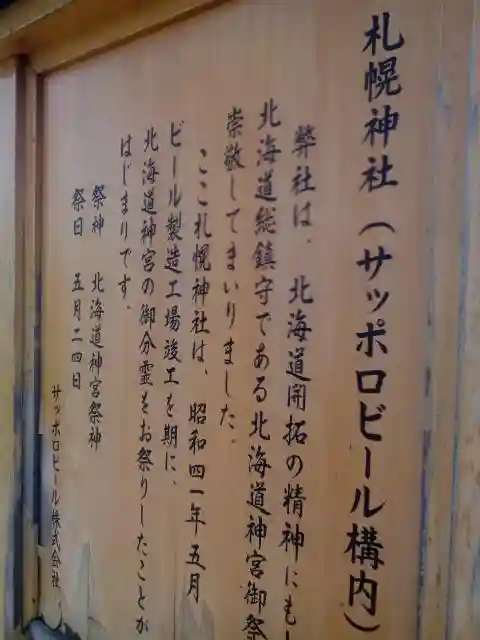 札幌神社（サッポロビール構内）
弊社は、北海道開拓の精神にも
北海道総鎮守である北海道神宮御祭
崇敬してまいりました。
ここ札幌神社は、昭和四一年五月
ビール製造工場竣工を期に、
北海道神宮の御分霊をお祭りしたことが
はじまりです。
祭神 北海道神宮祭神
祭日 五月二四日
サッポロビール株式会社